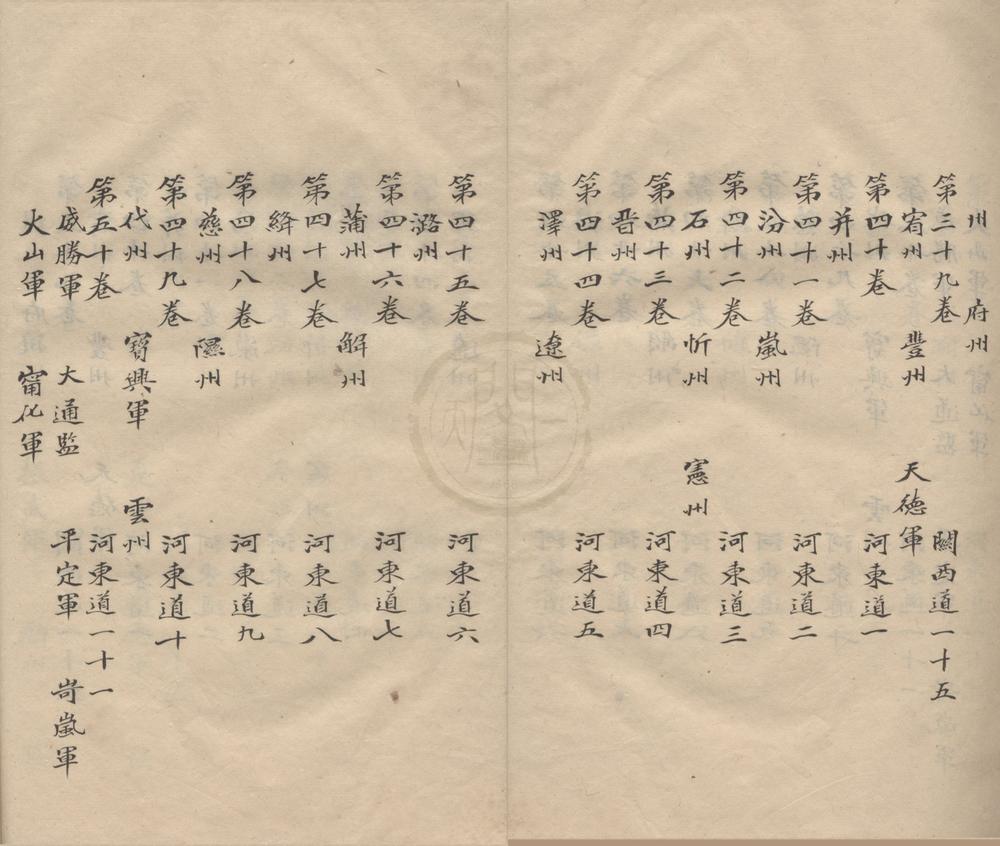 州　府州
第三十九卷　關西道一十五
宥州　豐州　天德軍
第四十卷　河東道一
并州
第四十一卷　河東道二
汾州　嵐州
第四十二卷　河東道三
石州　忻州　憲州
第四十三卷　河東道四
晋州
第四十四卷　河東道五
澤州　遼州
第四十五卷　河東道六
潞州
第四十六卷　河東道七
蒲州　解州
第四十七卷　河東道八
絳州
第四十八卷　河東道九
慈州　隰州
第四十九卷　河東道十
代州　寶興軍　雲州
第五十卷　河東道一十一
威勝軍　大通監　平定軍　岢嵐軍
火山軍　甯化軍